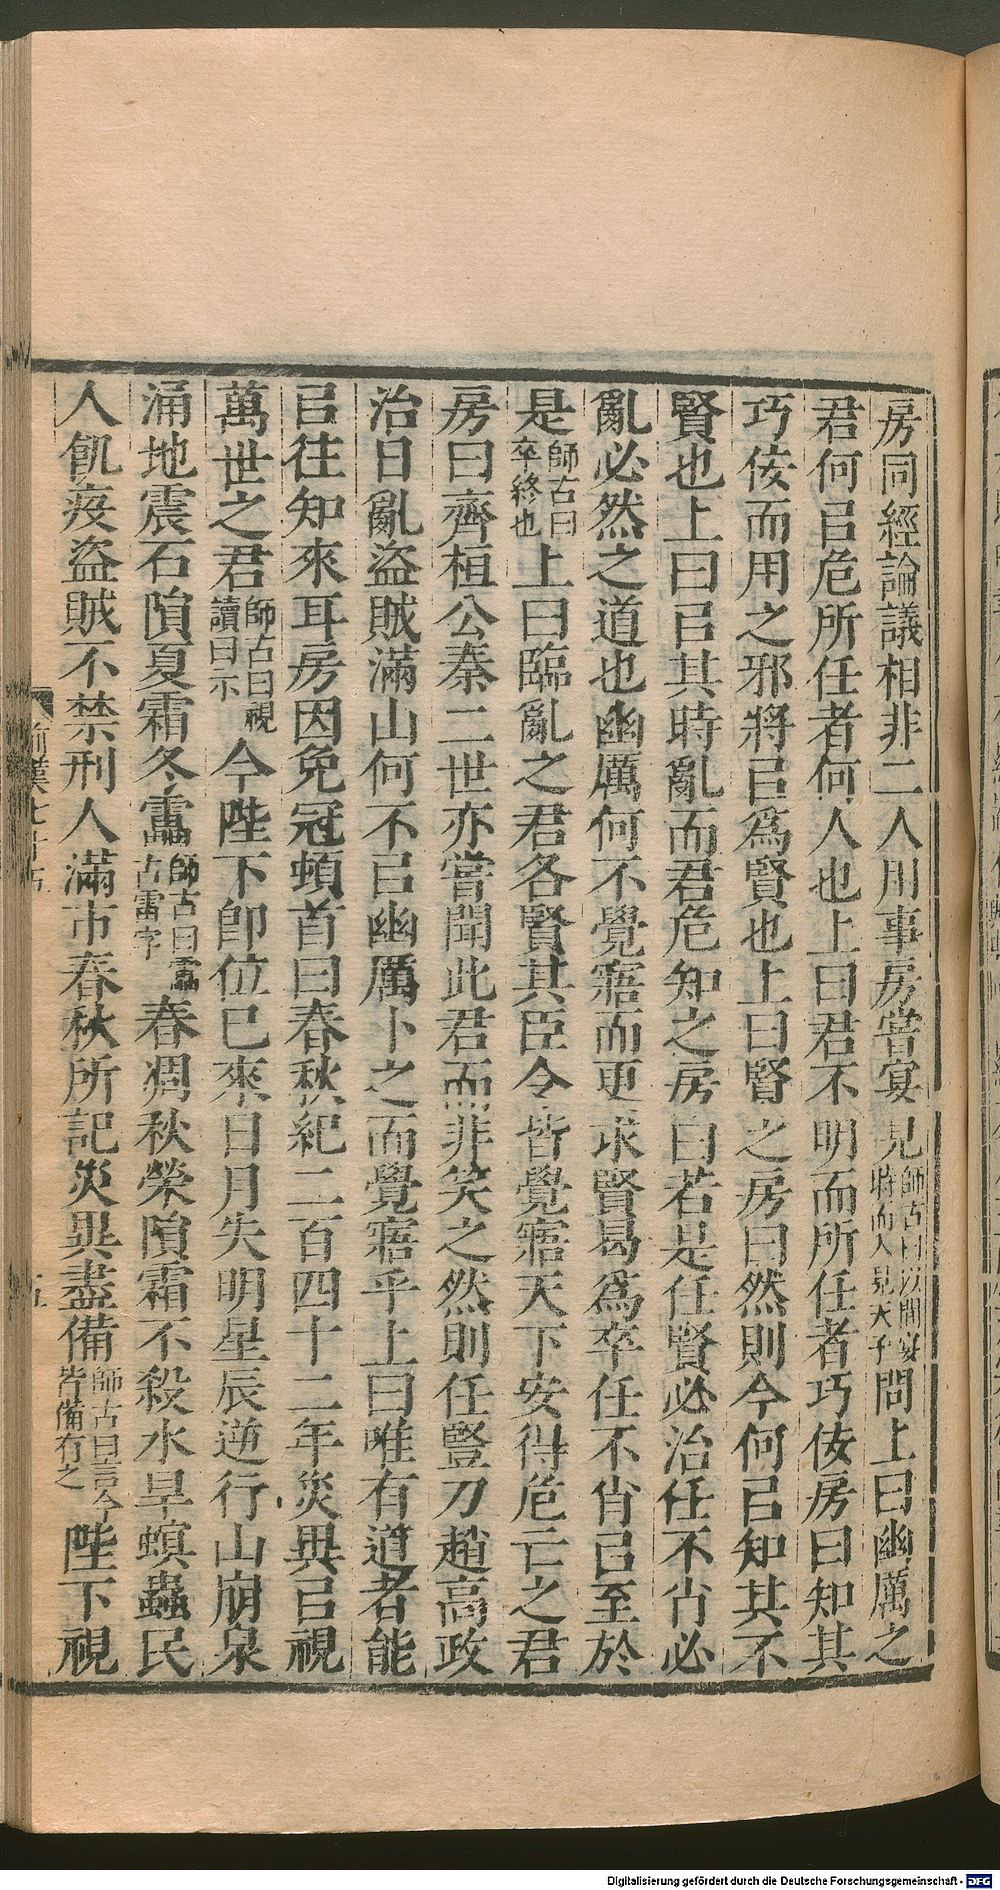 房同經論議相非二人用事房嘗宴見師古曰以閒宴時而入見天子問上曰幽厲之
君何㠯危所任者何人也上曰君不明而所任者巧佞房曰知其
巧佞而用之邪將㠯爲賢也上曰賢之房曰然則今何㠯知其不
賢也上曰㠯其時亂而君危知之房曰若是任賢必治任不肖必
亂必然之道也幽厲何不覺寤而更求賢曷爲卒任不肖㠯至於
是師古曰卒終也上曰臨亂之君各賢其臣令皆覺寤天下安得危亡之君
房曰齊桓公秦二世亦嘗聞此君而非笑之然則任豎刀趙高政
治日亂盜賊滿山何不㠯幽厲卜之而覺寤乎上曰唯有道者能
㠯往知來耳房因免冠頓首曰春秋紀二百四十二年災異㠯視
萬世之君師古曰視讀曰示今陛下卽位已來日月失明星辰逆行山崩泉
涌地震石隕夏霜冬靁師古曰靁古雷字春凋秋榮隕霜不殺水旱螟蟲民
人飢疫盜賊不禁刑人滿市春秋所記災異盡備師古曰言今皆備有之陛下視
前漢七十五
五
Digitalisierung gefördert durch die Deutsche Forschungsgemeinschaft - DFG